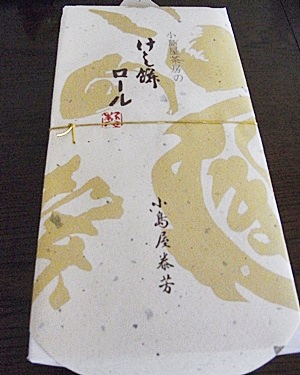 小島屋茶房の
けし餅
ロール
小島屋泰芳